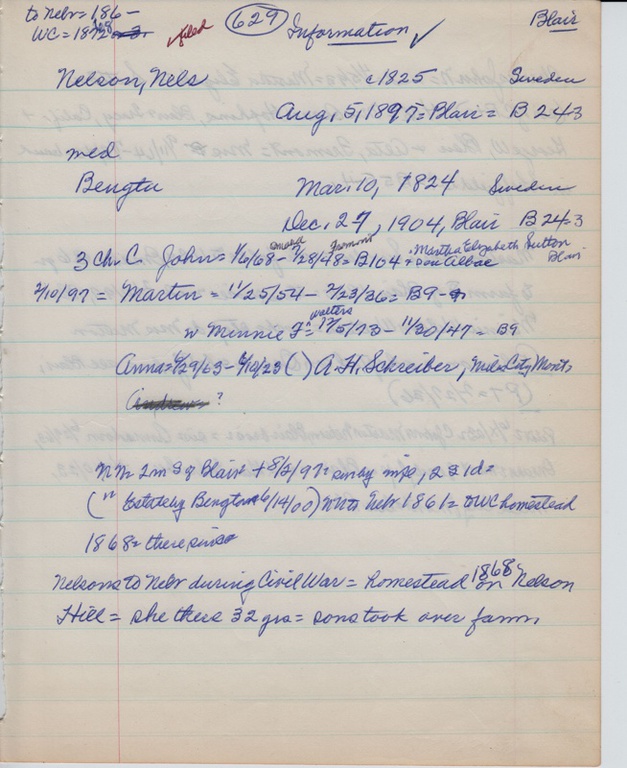 to Nebr = 186-
WC = 1872
filed
629
Information ✓
Blair
Nelson, Nels c1825 Sweden
Aug, 5, 1897 = Blair = B 243
med
Bengta Mar. 10, 1824 Sweden
Dec, 27, 1904, Blair B 243
3 Ch C. John = 1/6/68 - 1/28/48 = B104 = Martha Elizabeth Sutton
Blair
2/10/97 = Martin = 11/25/54 - 2/23/36 = B9
w Minnie F = Walters 12/5/73 - 11/30/47 = B9
Anna = 6/29/63 - 6/10/23 ( ) A.H. Schreiber, Miles City, Mont
Andrew ?
NN = 2 m S of Blair + 8/5/97 = by wife, 2 S 1 d =
(" Estate by Bengta 6/14/00) NN to Nebr 1861 = to WC homestead
1868 = there since
Nelsons to Nebr during Civil War = homestead 1868 on Nelson
Hill = she there 32 yrs = sons took over farm